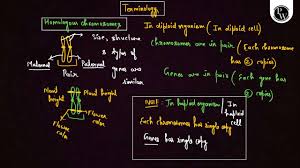 Terminology
Homologous chromosomes
Size, structure
& types of
genes are
similar
Maternal
Paternal
Pair
Plant height
Plant height
Flower color
Flower color
In diploid organism (In diploid cell)
Chromosomes are in pair (Each chromosome
has 2 copies)
Genes are in pair (Each gene has
2 copies)
Note: In haploid organism / In haploid cell
Each chromosomes has single copy
Genes has single copy